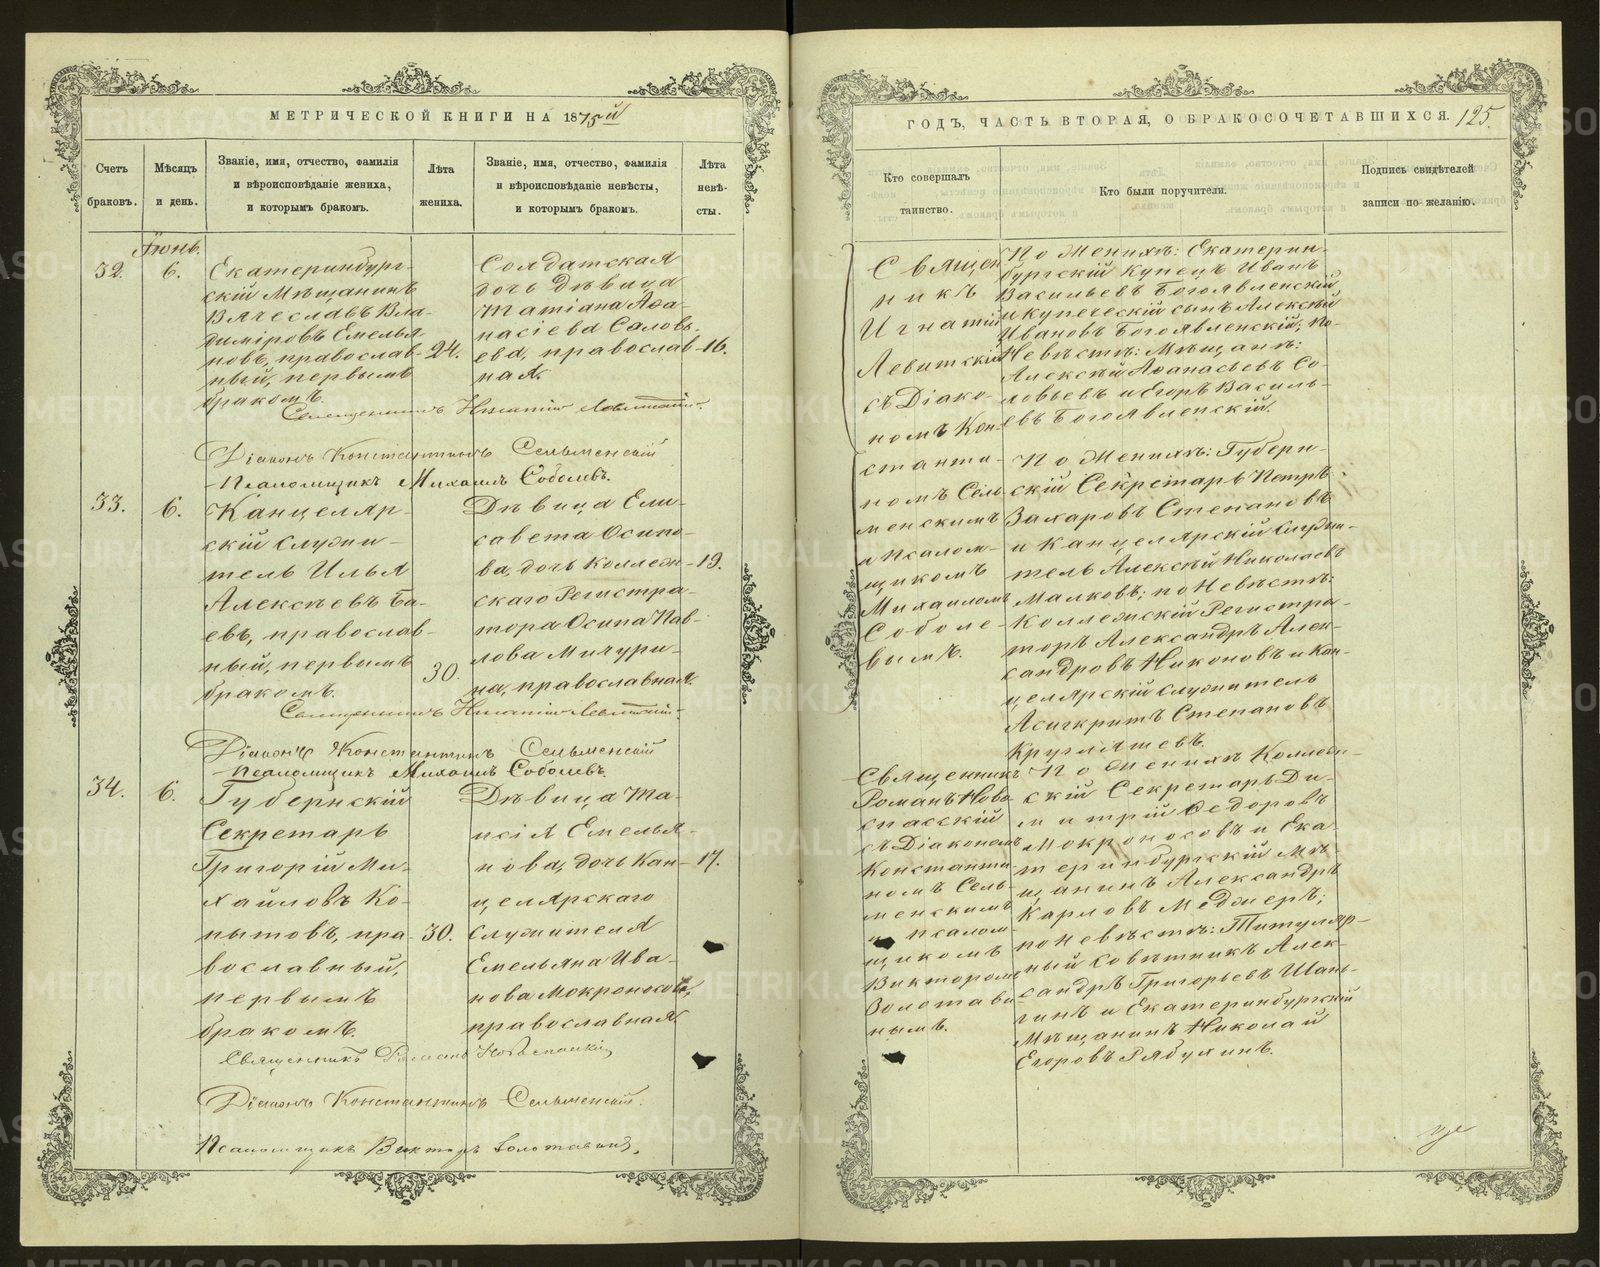 МЕТРИЧЕСКОЙ КНИГИ НА 1875й
Счетъ браковъ.
Мѣсяцъ и день.
Званіе, имя, отчество, фамилія
и вѣроисповѣданіе жениха,
и которымъ бракомъ.
Лѣта
жениха.
Званіе, имя, отчество, фамилія
и вѣроисповѣданіе невѣсты,
и которымъ бракомъ.
Лѣта
невѣ-
сты.
Іюнь.
32.
6.
Екатеринбург-
скій Мѣщанинъ
Вячеславъ Вла-
диміровъ Емелья-
новъ, православ-
ный, первымъ
бракомъ.
24.
Солдатская
дочь дѣвица
Татіана Аѳа-
насіева Соловь-
ева, православ-
ная.
16.
Священникъ Игнатій Левитскій.
Діаконъ Константинъ Сельменскій
Псаломщикъ Михаилъ Соболевъ.
33.
6.
Канцеляр-
скій служи-
тель Илья
Алексѣевъ Ба-
евъ, православ-
ный, первымъ
бракомъ.
30.
Дѣвица Ели-
савета Осипо-
ва, дочь Коллеж-
скаго Регистра-
тора Осипа Пав-
лова Мичури-
на, православная.
19.
Священникъ Игнатій Левитскій.
Діаконъ Константинъ Сельменскій
Псаломщикъ Михаилъ Соболевъ.
34.
6.
Губернскій
Секретарь
Григорій Ми-
хайловъ Ко-
пытовъ, пра-
вославный,
первымъ
бракомъ.
30.
Дѣвица Та-
исія Емелья-
нова, дочь Кан-
целярскаго
служителя
Емельяна Ива-
нова Мокроносова,
православная.
17.
Священникъ Романъ Новоспасскій
Діаконъ Константинъ Сельменскій.
Псаломщикъ Викторъ Золотавинъ.
ГОДЪ, ЧАСТЬ ВТОРАЯ, О БРАКОСОЧЕТАВШИХСЯ. 125.
Кто совершалъ
таинство.
Кто были поручители.
Подпись свидѣтелей
записи по желанію.
Священ
никъ
Игнатій
Левитскій
съ Діако-
номъ Кон-
станти-
номъ Сель
менскимъ
и Псалом-
щикомъ
Михаиломъ
Соболе-
вымъ.
По Женихѣ: Екатерин-
бургскій Купецъ Иванъ
Васильевъ Богоявленскій
и купеческій сынъ Алексѣй
Ивановъ Богоявленскій; по
Невѣстѣ: Мѣщане:
Алексѣй Аѳанасьевъ Со-
ловьевъ и Егоръ Василь-
евъ Богоявленскій.
По Женихѣ: Губерн-
скій Секретарь Петръ
Захаровъ Степановъ
и Канцелярскій служи-
тель Алексѣй Николаевъ
Малковъ; по Невѣстѣ:
Коллежскій Регистра-
торъ Александръ Алек-
сандровъ Никоновъ и Кан-
целярскій служитель
Асигкритъ Степановъ
Кругляшевъ.
Священникъ
Романъ Ново
спасскій
съ Діакономъ
Константи
номъ Сель-
менскимъ
и псалом-
щикомъ
Викторомъ
Золотави-
нымъ.
По Женихѣ Коллеж-
скій Секретарь Ди-
митрій Ѳедоровъ
Мокроносовъ и Ека-
теринбургскій Мѣ-
щанинъ Александръ
Карловъ Меджеръ;
по Невѣстѣ: Титуляр-
ный Совѣтникъ Алек-
сандръ Григорьевъ Шань-
гинъ и Екатеринбургскій
Мѣщанинъ Николай
Егоровъ Рябухинъ.
METRIKI.GASO-URAL.RU